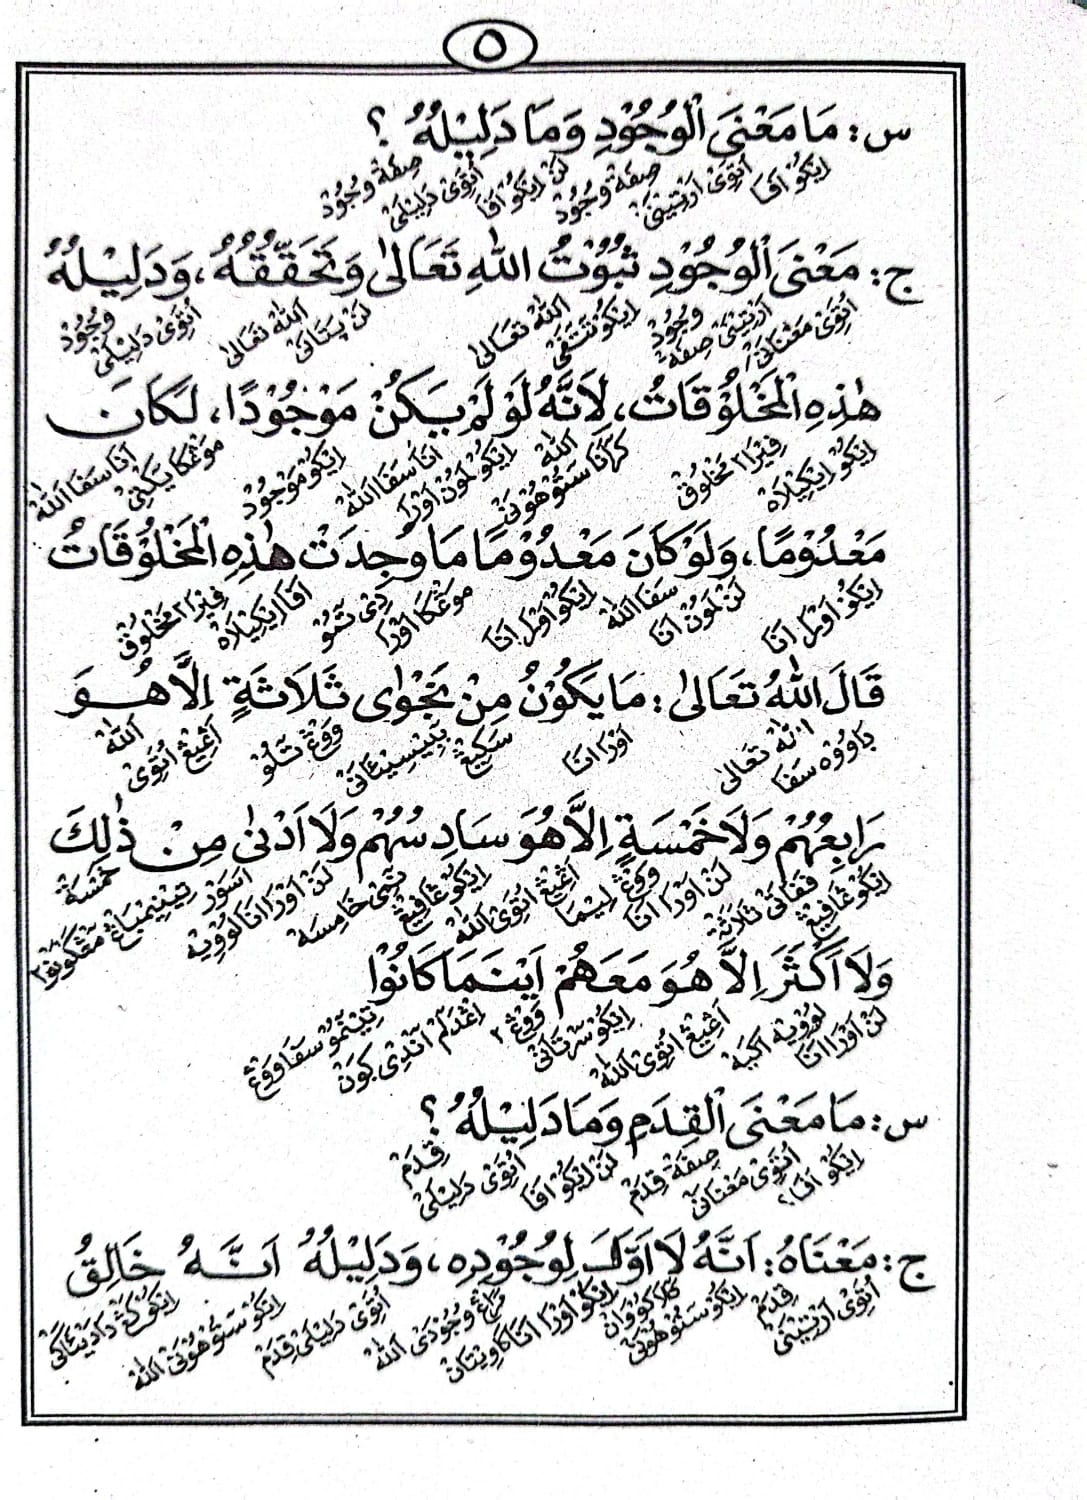 ٥
س : مَا مَعْنَى الْوُجُوْدِ وَمَا دَلِيْلُهُ ؟
ايكو افا اتوي ارتيني صفة وجود لن ايكو افا اتوي دليلى صفة وجود
ج : مَعْنَى الْوُجُوْدِ ثُبُوْتُ اللهِ تَعَالىٰ وَتَحَقُّقُهُ، وَدَلِيْلُهُ
اتوي معناني ارتيني صفة وجود ايكو تتفى الله تعالى لن پتانى الله تعالى اتوي دليلى وجود
هٰذِهِ الْمَخْلُوْقَاتُ، لِاَنَّهُ لَوْ لَمْ يَكُنْ مَوْجُوْدًا، لَكَانَ
ايكو ايكيلاه فيرا٢ مخلوق كرانا ستوهونى الله ايكو لمون اورا انا سفا الله ايكو موجود موڠكا يكتى انا سفا الله
مَعْدُوْمًا، وَلَوْ كَانَ مَعْدُوْمًا مَا وُجِدَتْ هٰذِهِ الْمَخْلُوْقَاتُ
ايكو اورا انا لن لمون انا سفا الله ايكو اورا انا موڠكا اورا دى تمو افا ايكيلاه فيرا٢ مخلوق
قَالَ اللهُ تَعَالىٰ : مَا يَكُوْنُ مِنْ نَجْوٰى ثَلَاثَةٍ اِلَّا هُوَ
داووه سفا الله تعالى اورا انا سكيڠ ووڠ تلو اڠيڠ اتوي الله
رَابِعُهُمْ وَلَا خَمْسَةٍ اِلَّا هُوَ سَادِسُهُمْ وَلَا اَدْنٰى مِنْ ذٰلِكَ
ففاتى ثلاثة لن اورا انا ووڠ ليما اڠيڠ اتوي الله خامسة لن اورا انا لوويه خمسة
وَلَا اَكْثَرَ اِلَّا هُوَ مَعَهُمْ اَيْنَمَا كَانُوْا
لن اورا انا لوويه اكيه اڠيڠ اتوي الله ايكو سرتانى ووڠ٢ اڠدلم تينمو سفا ووڠ
س : مَا مَعْنَى الْقِدَمِ وَمَا دَلِيْلُهُ ؟
ايكو افا؟ اتوي معنانى صفة قدم لن ايكو افا اتوي دليلى قدم
ج : مَعْنَاهُ : اَنَّهُ لَا اَوَّلَ لِوُجُوْدِهِ، وَدَلِيْلُهُ اَنَّهُ خَالِقُ
اتوي ارتينى قدم ايكو ستوهونى ايكو اورا انا كاويتان وجودى الله اتوي دليلى قدم ايكو ستوهونى الله